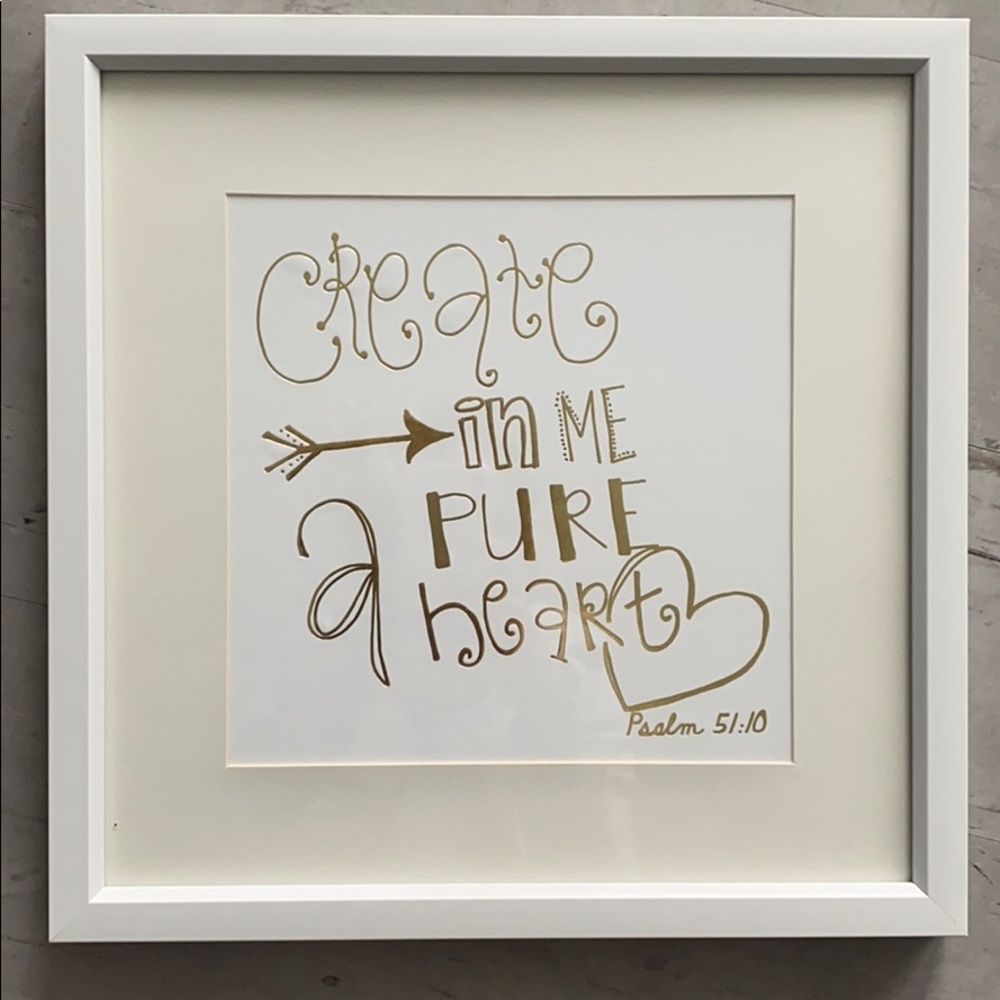 CREATE
in ME
a PURE
heart
Psalm 51:10